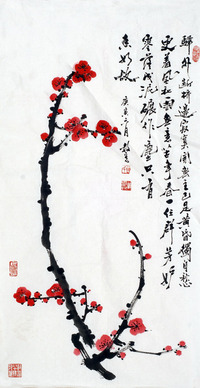 驛外斷橋邊寂寞開無主已是黃昏獨自愁
更著風和雨無意苦爭春一任群芳妒
零落成泥碾作塵只有
香如故
庚寅